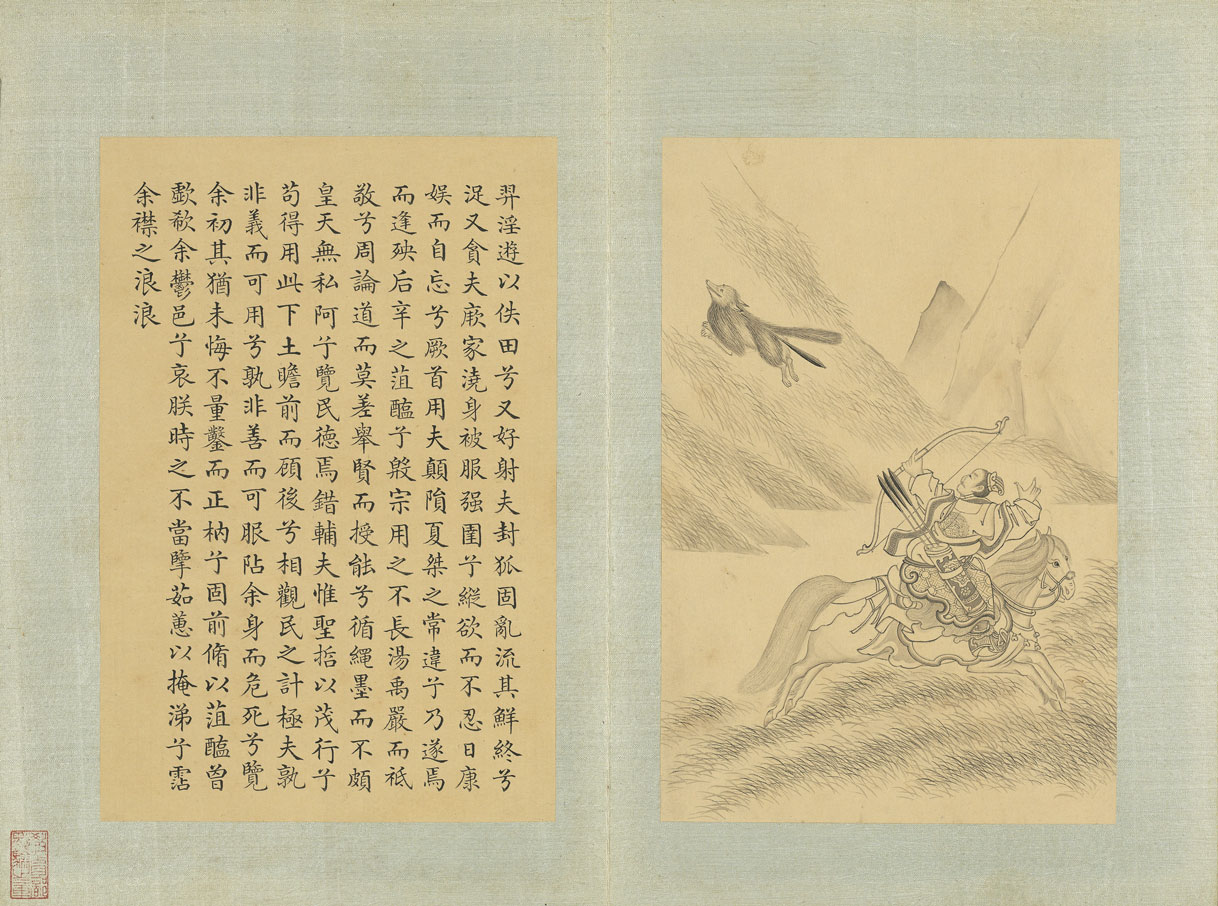 羿淫遊以佚田兮又好射夫封狐固亂流其鮮終兮
浞又貪夫厥家澆身被服强圉兮縱欲而不忍日康
娛而自忘兮厥首用夫顛隕夏桀之常違兮乃遂焉
而逢殃后辛之菹醢兮殷宗用之不長湯禹嚴而祗
敬兮周論道而莫差舉賢而授能兮循繩墨而不頗
皇天無私阿兮覽民德焉錯輔夫惟聖哲以茂行兮
苟得用此下土瞻前而顧後兮相觀民之計極夫孰
非義而可用兮孰非善而可服阽余身而危死兮覽
余初其猶未悔不量鑿而正枘兮固前脩以菹醢曾
歔欷余鬱邑兮哀朕時之不當擥茹蕙以掩涕兮霑
余襟之浪浪